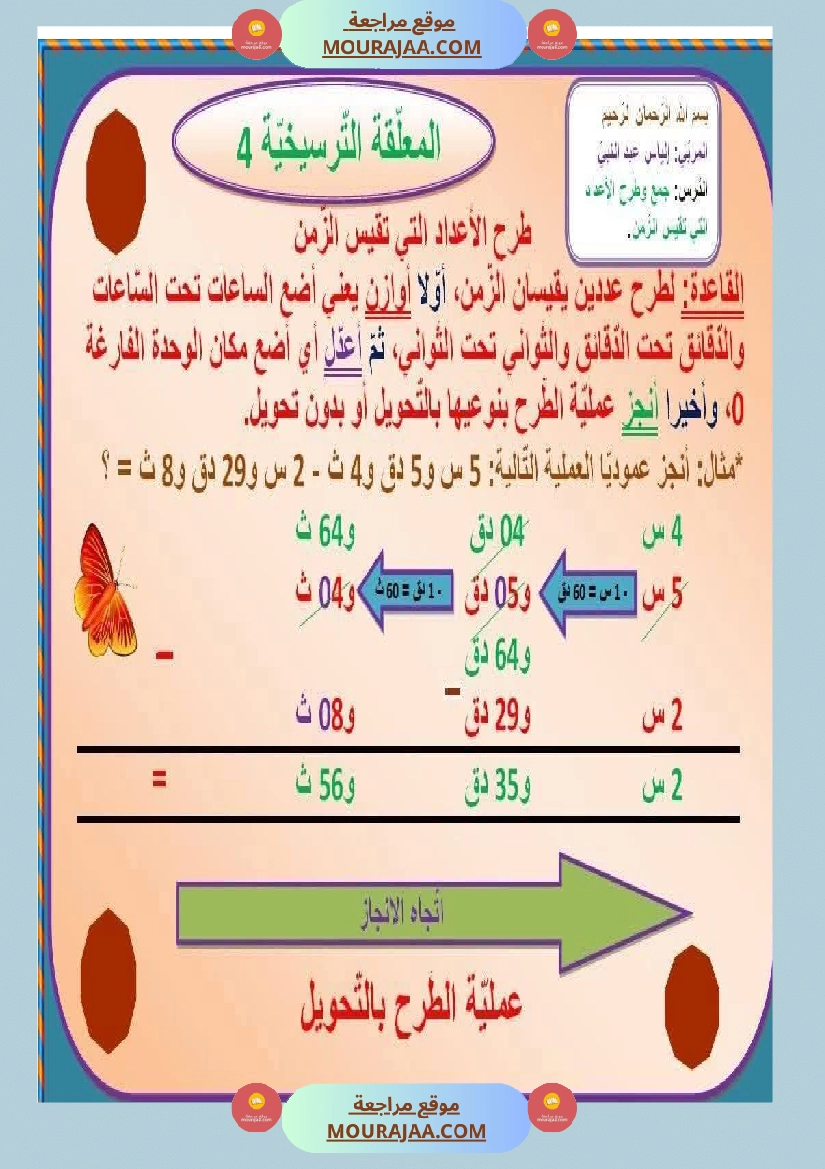 موقع مراجعة
MOURAJAA.COM
بسم الله الرّحمان الرّحيم
المربّي: إلياس عبد النبيّ
الدّرس: جمع وطرح الأعداد
التي تقيس الزّمن.
المعلّقة التّرسيخيّة 4
طرح الأعداد التي تقيس الزّمن
القاعدة: لطرح عددين يقيسان الزّمن، أوّلا أوازن يعني أضع الساعات تحت السّاعات
والدّقائق تحت الدّقائق والثّواني تحت الثّواني، ثمّ أعدّل أي أضع مكان الوحدة الفارغة
0، وأخيرا أنجز عمليّة الطّرح بنوعيها بالتّحويل أو بدون تحويل.
*مثال: أنجز عموديّا العملية التّالية: 5 س و5 دق و4 ث - 2 س و29 دق و8 ث = ؟
4 س 04 دق و64 ث
5 س - 1 س = 60 دق و05 دق - 1 دق = 60 ث و04 ث
و64 دق -
2 س و29 دق - و08 ث
2 س و35 دق و56 ث =
اتّجاه الانجاز
عمليّة الطّرح بالتّحويل
موقع مراجعة
MOURAJAA.COM